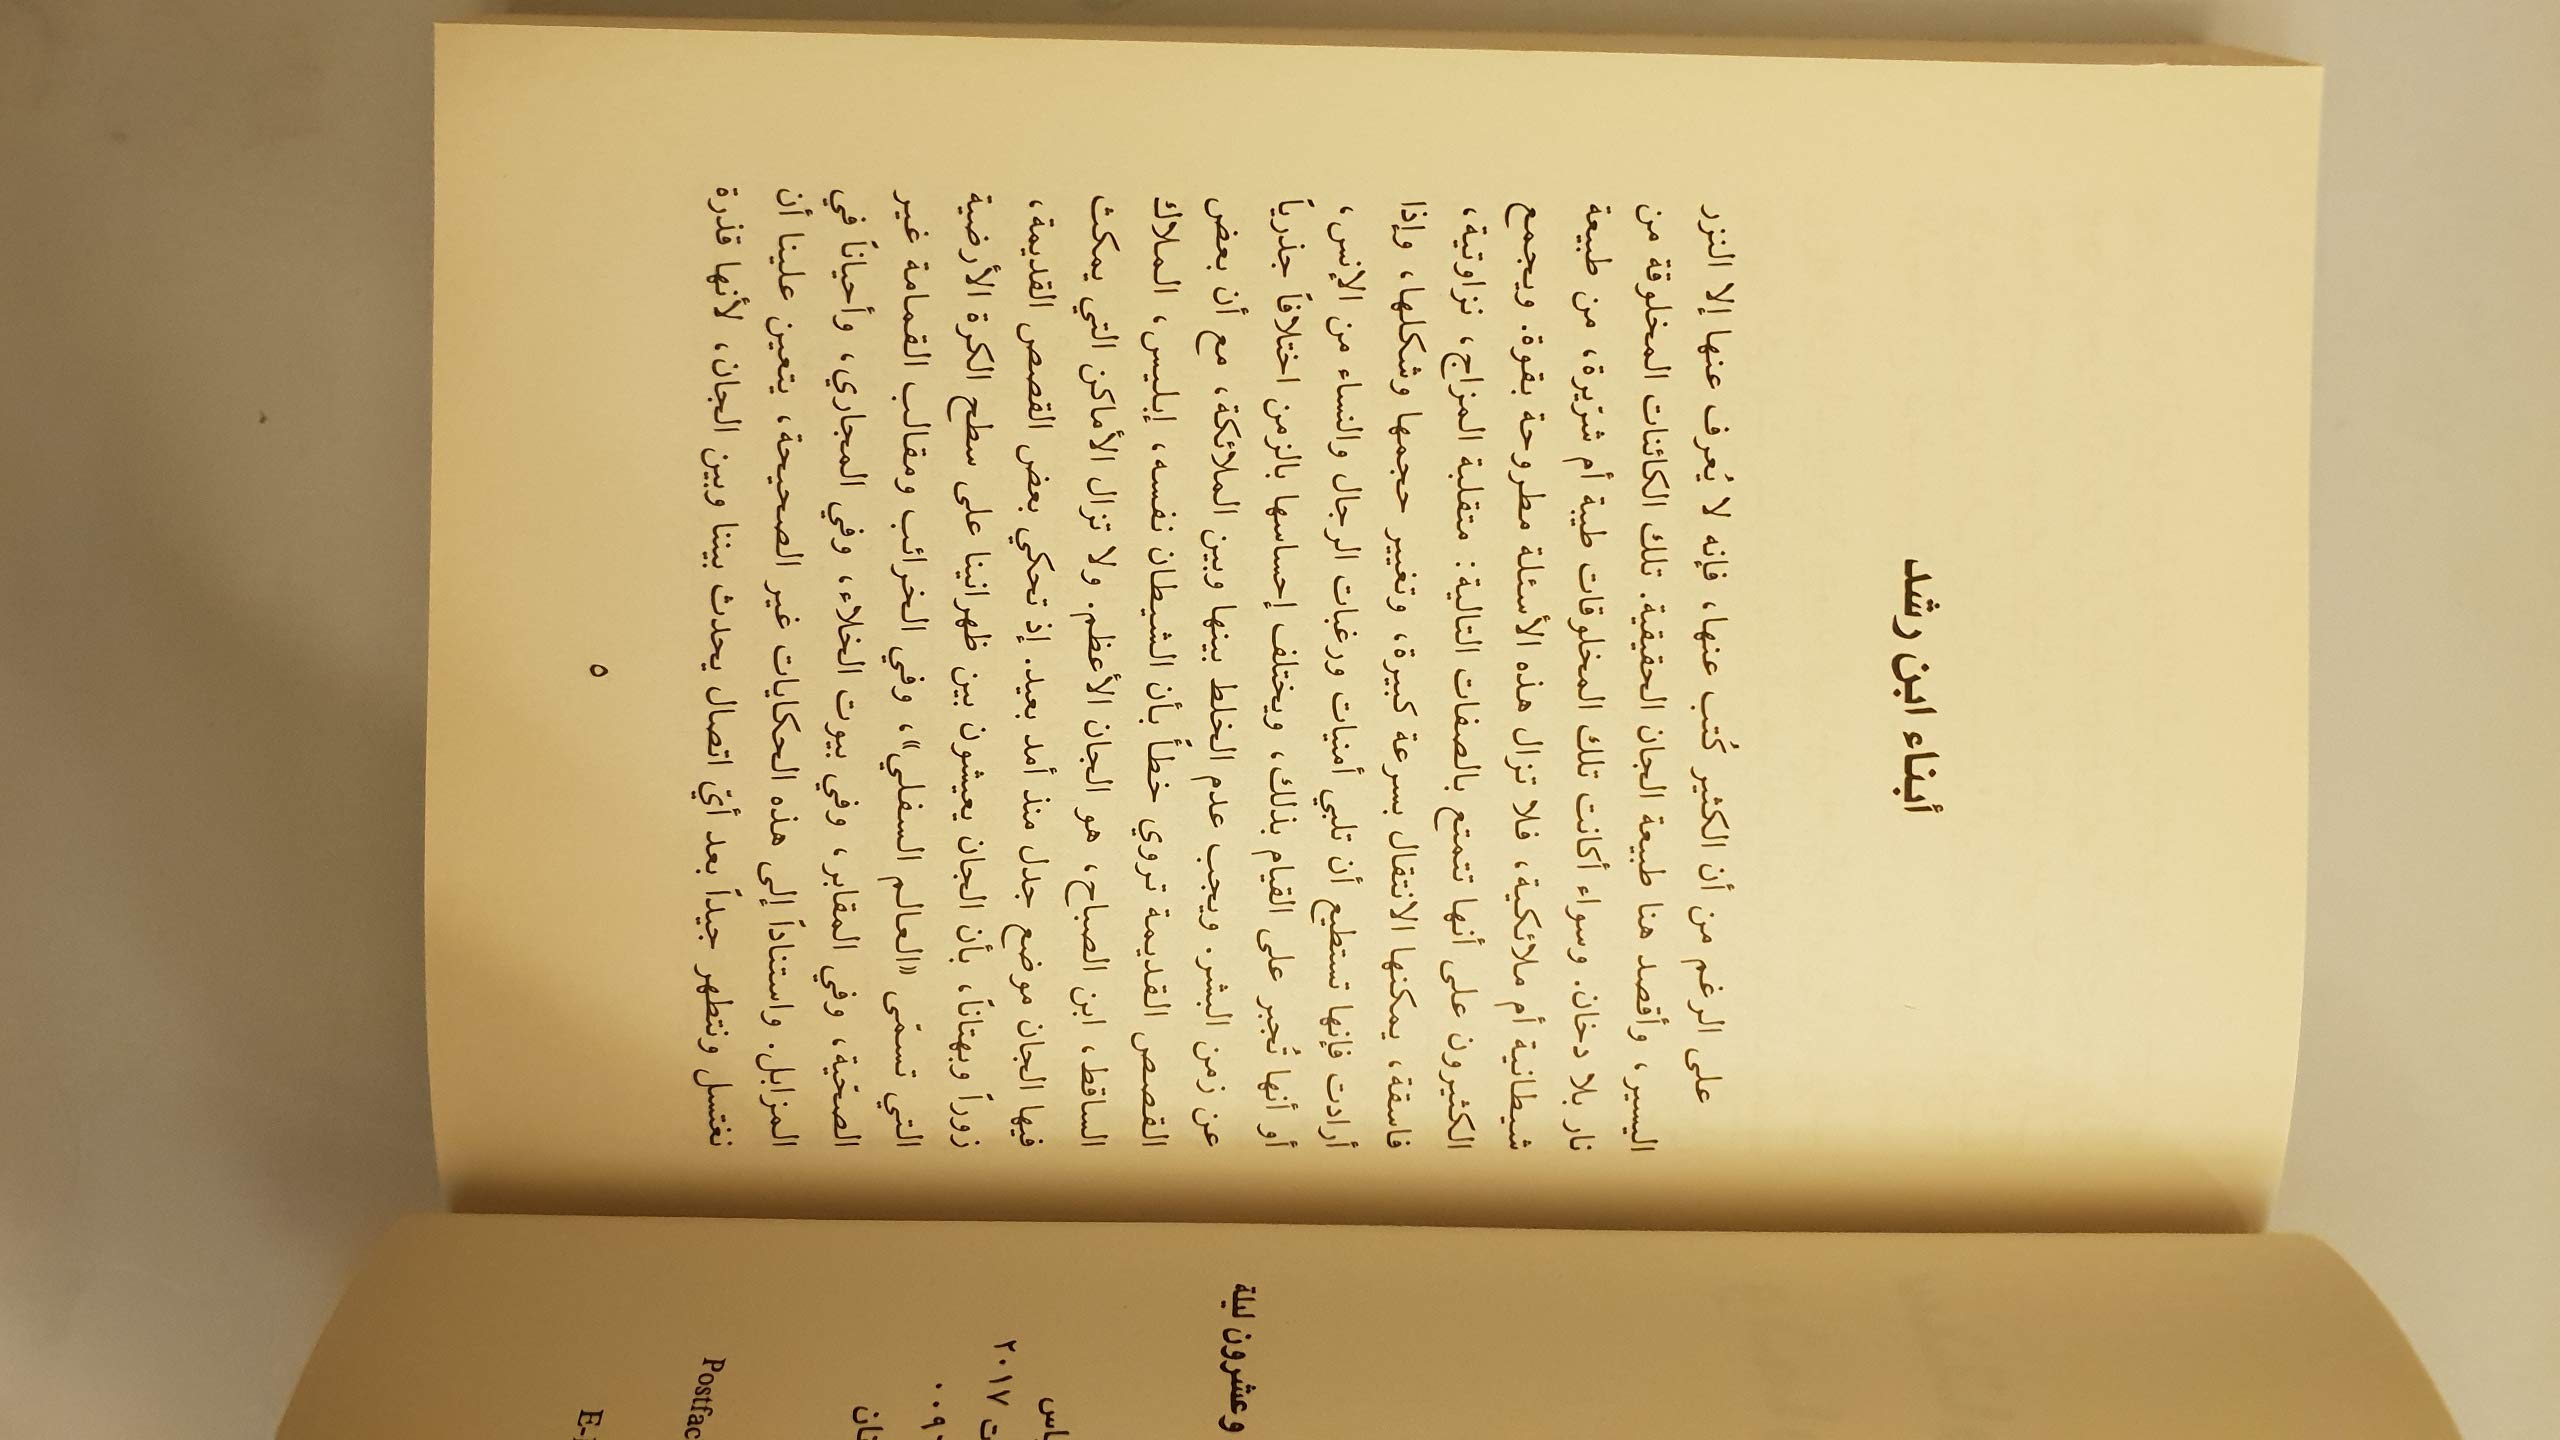 أبناء ابن رشد
على الرغم من أن الكثير كُتب عنها، فإنه لا يُعرف عنها إلا النزر
اليسير، وأقصد هنا طبيعة الجان الحقيقية. تلك الكائنات المخلوقة من
نار بلا دخان. وسواء أكانت تلك المخلوقات طيبة أم شرّيرة، من طبيعة
شيطانية أم ملائكية، فلا تزال هذه الأسئلة مطروحة بقوة. ويجمع
الكثيرون على أنها تتمتع بالصفات التالية: متقلبة المزاج، نزاوتية،
فاسقة، يمكنها الانتقال بسرعة كبيرة، وتغيير حجمها وشكلها، وإذا
أرادت فإنها تستطيع أن تلبي أمنيات ورغبات الرجال والنساء من الإنس،
أو أنها تُجبر على القيام بذلك، ويختلف إحساسها بالزمن اختلافاً جذرياً
عن زمن البشر. ويجب عدم الخلط بينها وبين الملائكة، مع أن بعض
القصص القديمة تروي خطأً بأن الشيطان نفسه، إبليس، الملاك
الساقط، ابن الصباح، هو الجان الأعظم. ولا تزال الأماكن التي يمكث
فيها الجان موضع جدل منذ أمد بعيد. إذ تحكي بعض القصص القديمة،
زوراً وبهتاناً، بأن الجان يعيشون بين ظهرانينا على سطح الكرة الأرضية
التي تسمّى «العالم السفلي»، وفي الخرائب ومقالب القمامة غير
الصحّية، وفي المقابر، وفي بيوت الخلاء، وفي المجاري، وأحياناً في
المزابل. واستناداً إلى هذه الحكايات غير الصحيحة، يتعين علينا أن
نغتسل ونتطهر جيداً بعد أيّ اتصال يحدث بيننا وبين الجان، لأنها قذرة
٥
وعشرون ليلة
٢٠١٧
Postfac
E-